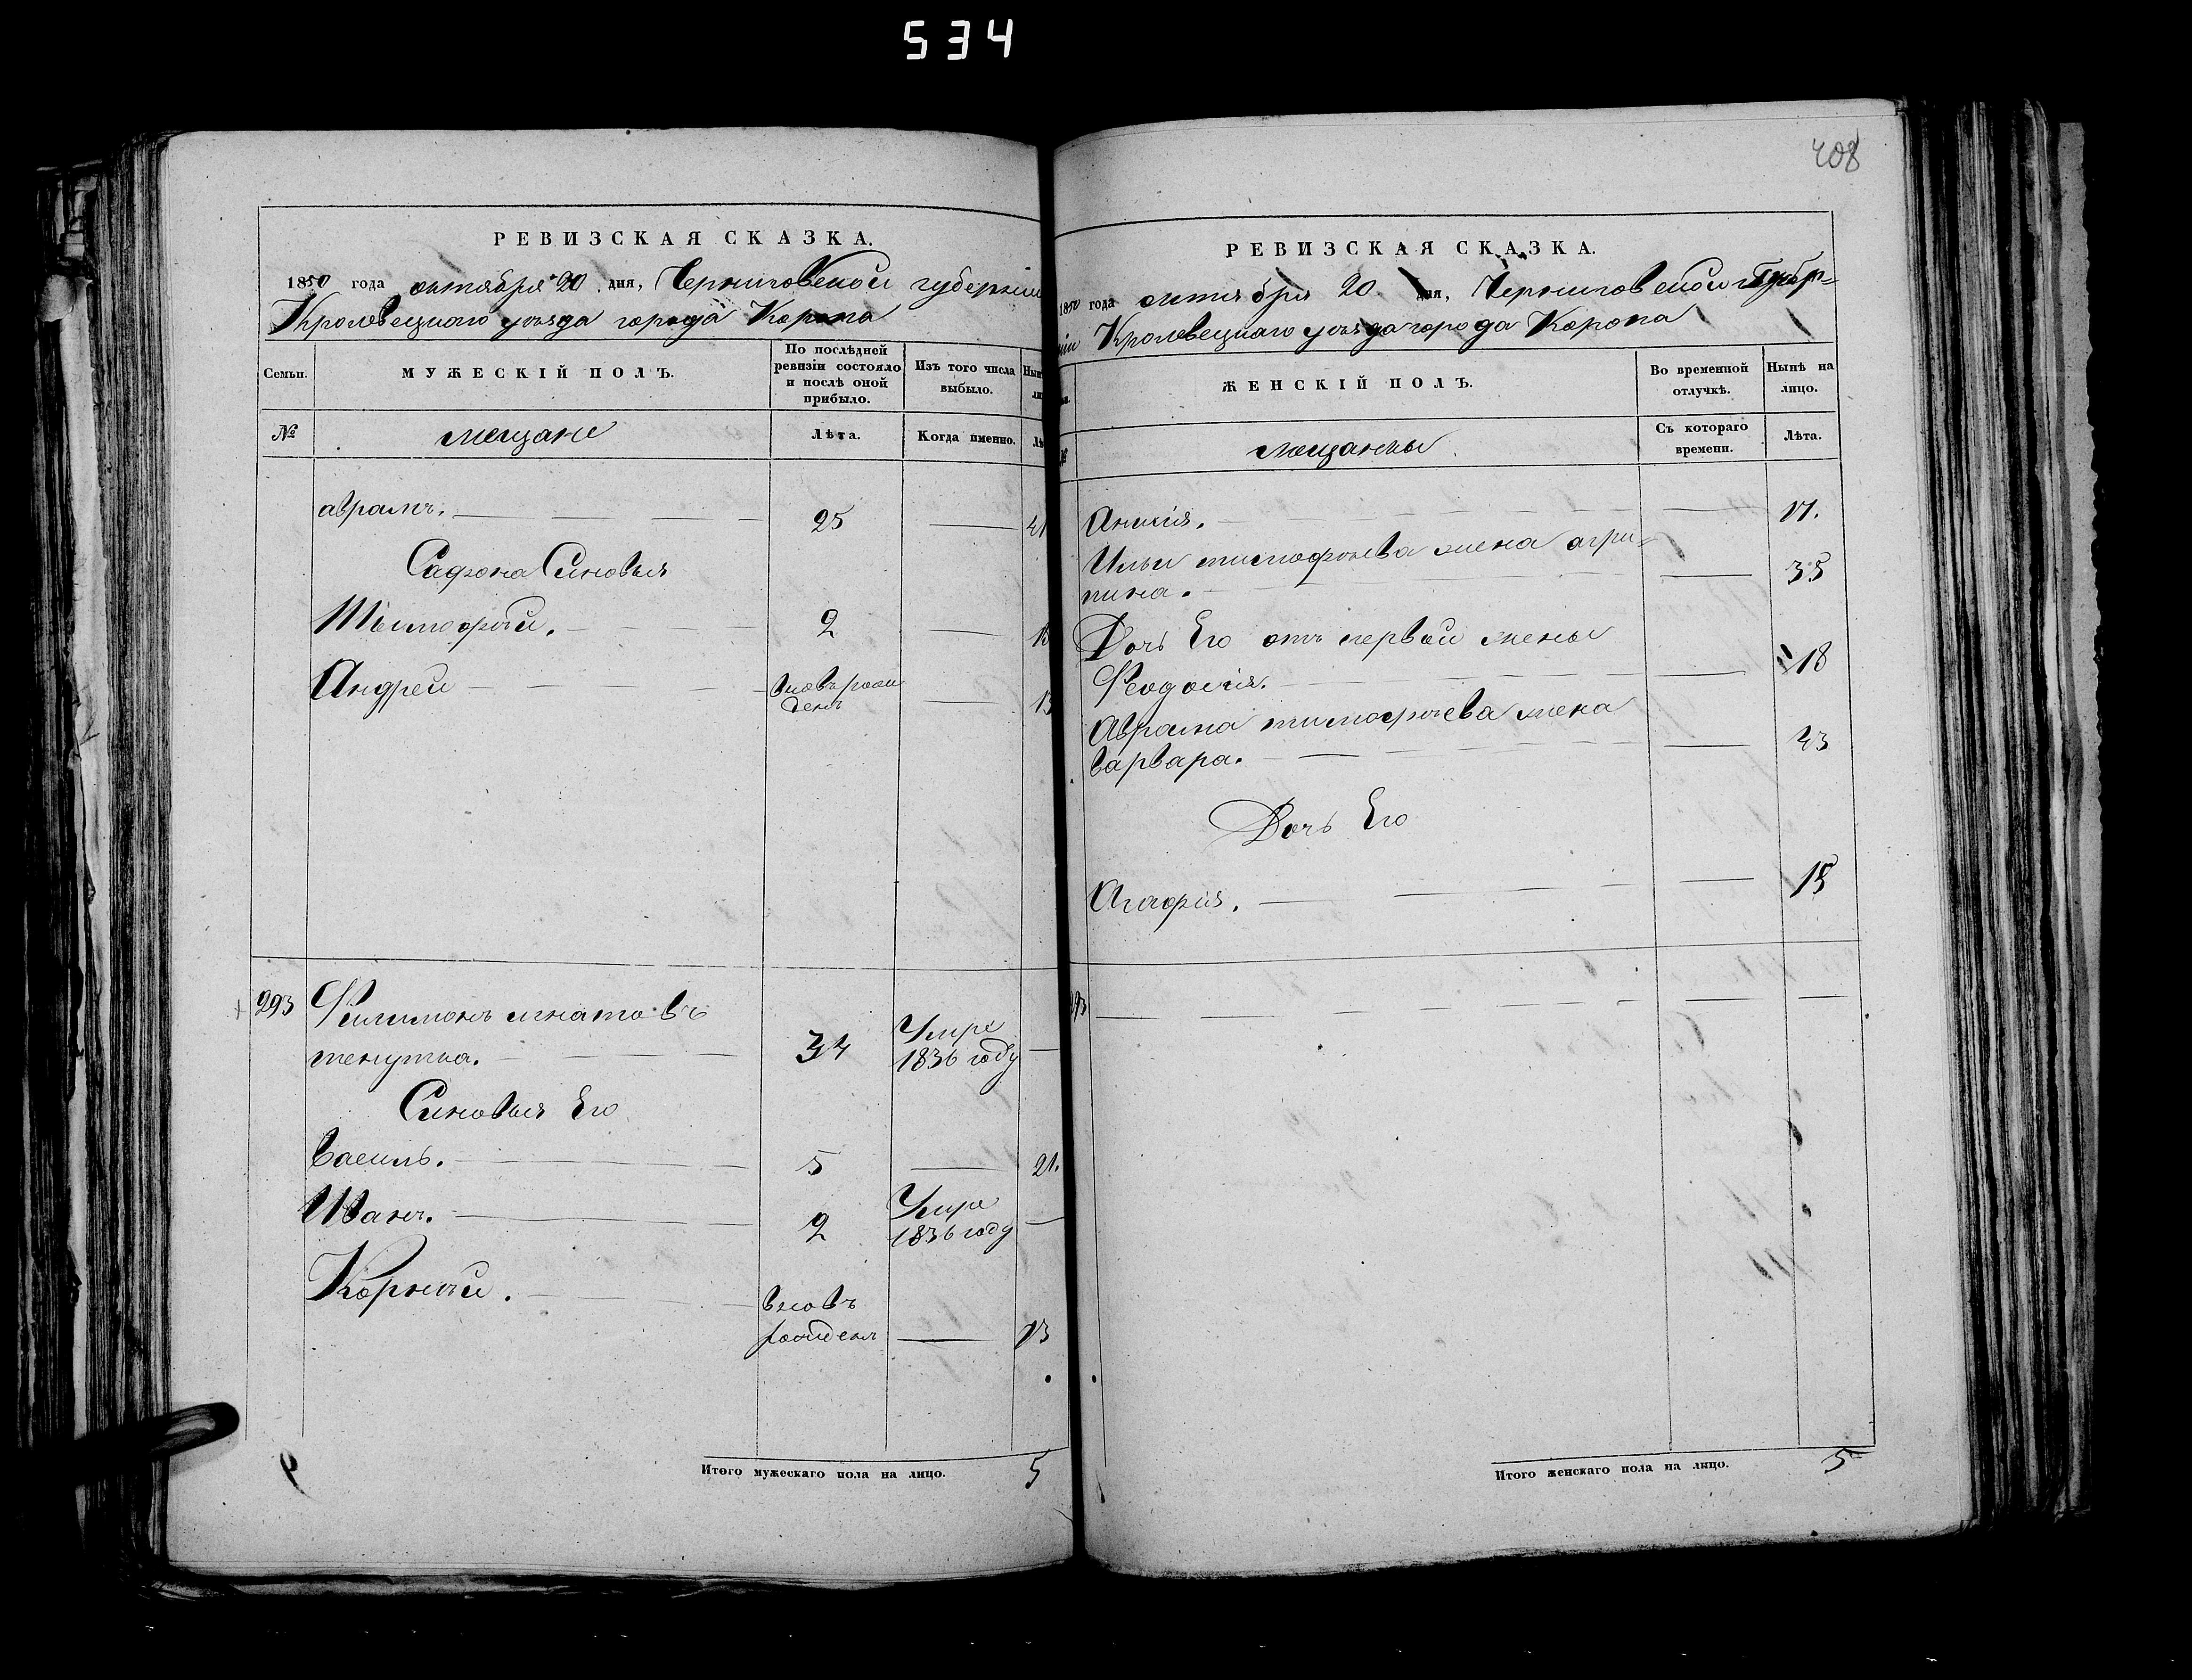 534
РЕВИЗСКАЯ СКАЗКА.
1850 года октября 20 дня, Черниговской губерніи
Кролевецкаго уѣзда города Коропа
Семьи.
МУЖЕСКІЙ ПОЛЪ.
По послѣдней ревизіи состояло и послѣ оной прибыло.
Изъ того числа выбыло.
№
мещане
Лѣта.
Когда именно.
аврамъ. 25 41
Сафона Синовья
Тимофѣй. 2
Андрей вновь рожденъ 13
293 Филимонъ игнатовъ
34 Умре 1836 году
Синовья Его
Василь. 5 21.
Иванъ. 2 Умре 1836 году
Корнѣй. вновь рожден 13
Итого мужескаго пола на лицо. 5
408
РЕВИЗСКАЯ СКАЗКА.
1850 года октября 20 дня, Черниговской Губер=
ніи Кролевецкаго уѣзда города Коропа
ЖЕНСКІЙ ПОЛЪ.
Во временной отлучкѣ.
Нынѣ на лицо.
мещанки
Съ котораго времени.
Лѣта.
17.
Ильи тимофѣева жена агри=
пина. 35
Дочь Его отъ первой жены
Феодосія. 18
Аврама тимофѣева жена
варвара. 43
Дочь Его
Агафія. 15
293
Итого женскаго пола на лицо. 5